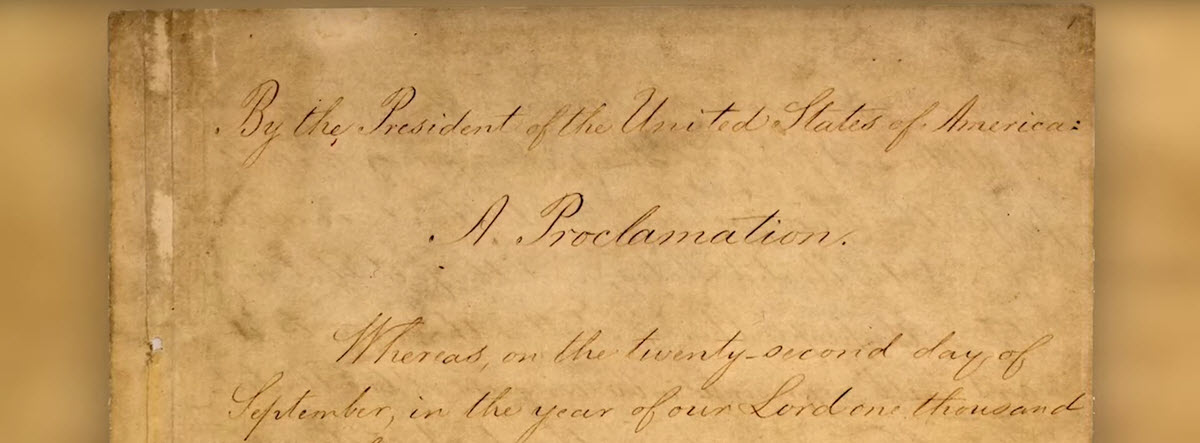 By the President of the United States of America:
A Proclamation.
Whereas, on the twenty-second day of
September, in the year of our Lord one thousand